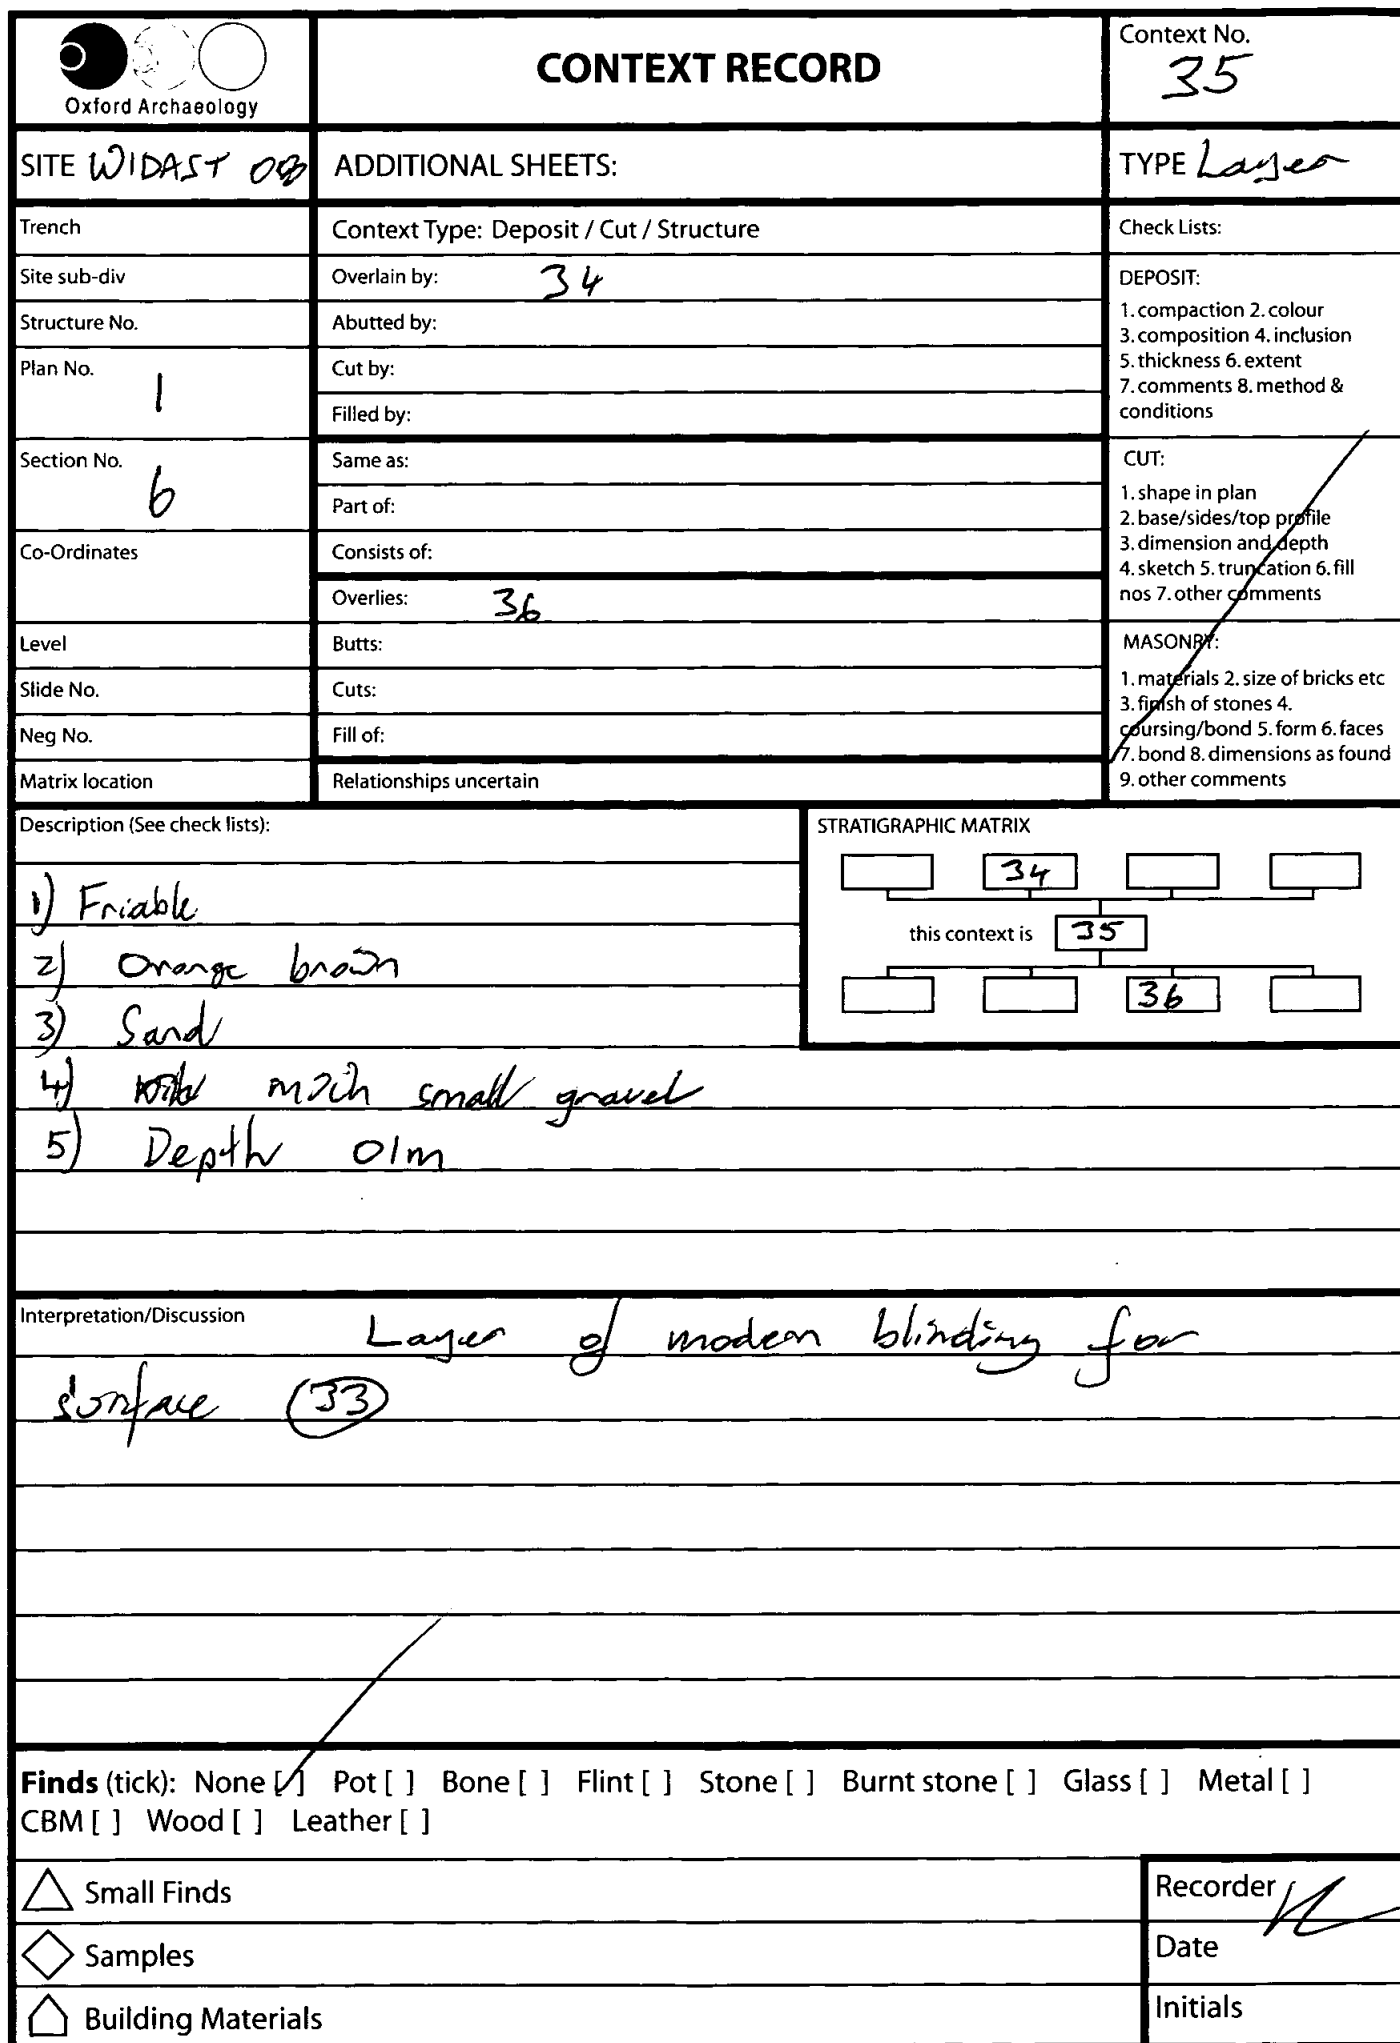 Oxford Archaeology
CONTEXT RECORD
Context No.
35
SITE WIDAST 08
ADDITIONAL SHEETS:
TYPE Layer
Trench
Site sub-div
Structure No.
Plan No. 1
Section No. 6
Co-Ordinates
Level
Slide No.
Neg No.
Matrix location
Context Type: Deposit / Cut / Structure
Overlain by: 34
Abutted by:
Cut by:
Filled by:
Same as:
Part of:
Consists of:
Overlies: 36
Butts:
Cuts:
Fill of:
Relationships uncertain
Check Lists:
DEPOSIT:
1. compaction 2. colour
3. composition 4. inclusion
5. thickness 6. extent
7. comments 8. method &
conditions
CUT:
1. shape in plan
2. base/sides/top profile
3. dimension and depth
4. sketch 5. truncation 6. fill
nos 7. other comments
MASONRY:
1. materials 2. size of bricks etc
3. finish of stones 4.
coursing/bond 5. form 6. faces
7. bond 8. dimensions as found
9. other comments
Description (See check lists):
1) Friable
2) Orange brown
3) Sand
4) with much small gravel
5) Depth 01m
STRATIGRAPHIC MATRIX
34
this context is 35
36
Interpretation/Discussion Layer of modern blinding for
surface 33
Finds (tick): None [ ] Pot [ ] Bone [ ] Flint [ ] Stone [ ] Burnt stone [ ] Glass [ ] Metal [ ]
CBM [ ] Wood [ ] Leather [ ]
Small Finds
Samples
Building Materials
Recorder
Date
Initials